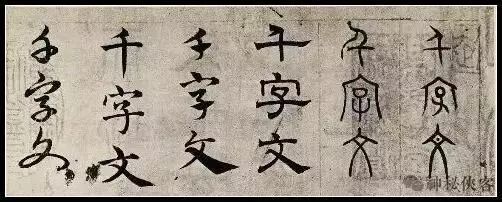 千字文
千字文
千字文
千字文
千字文
千字文
神秘侠客